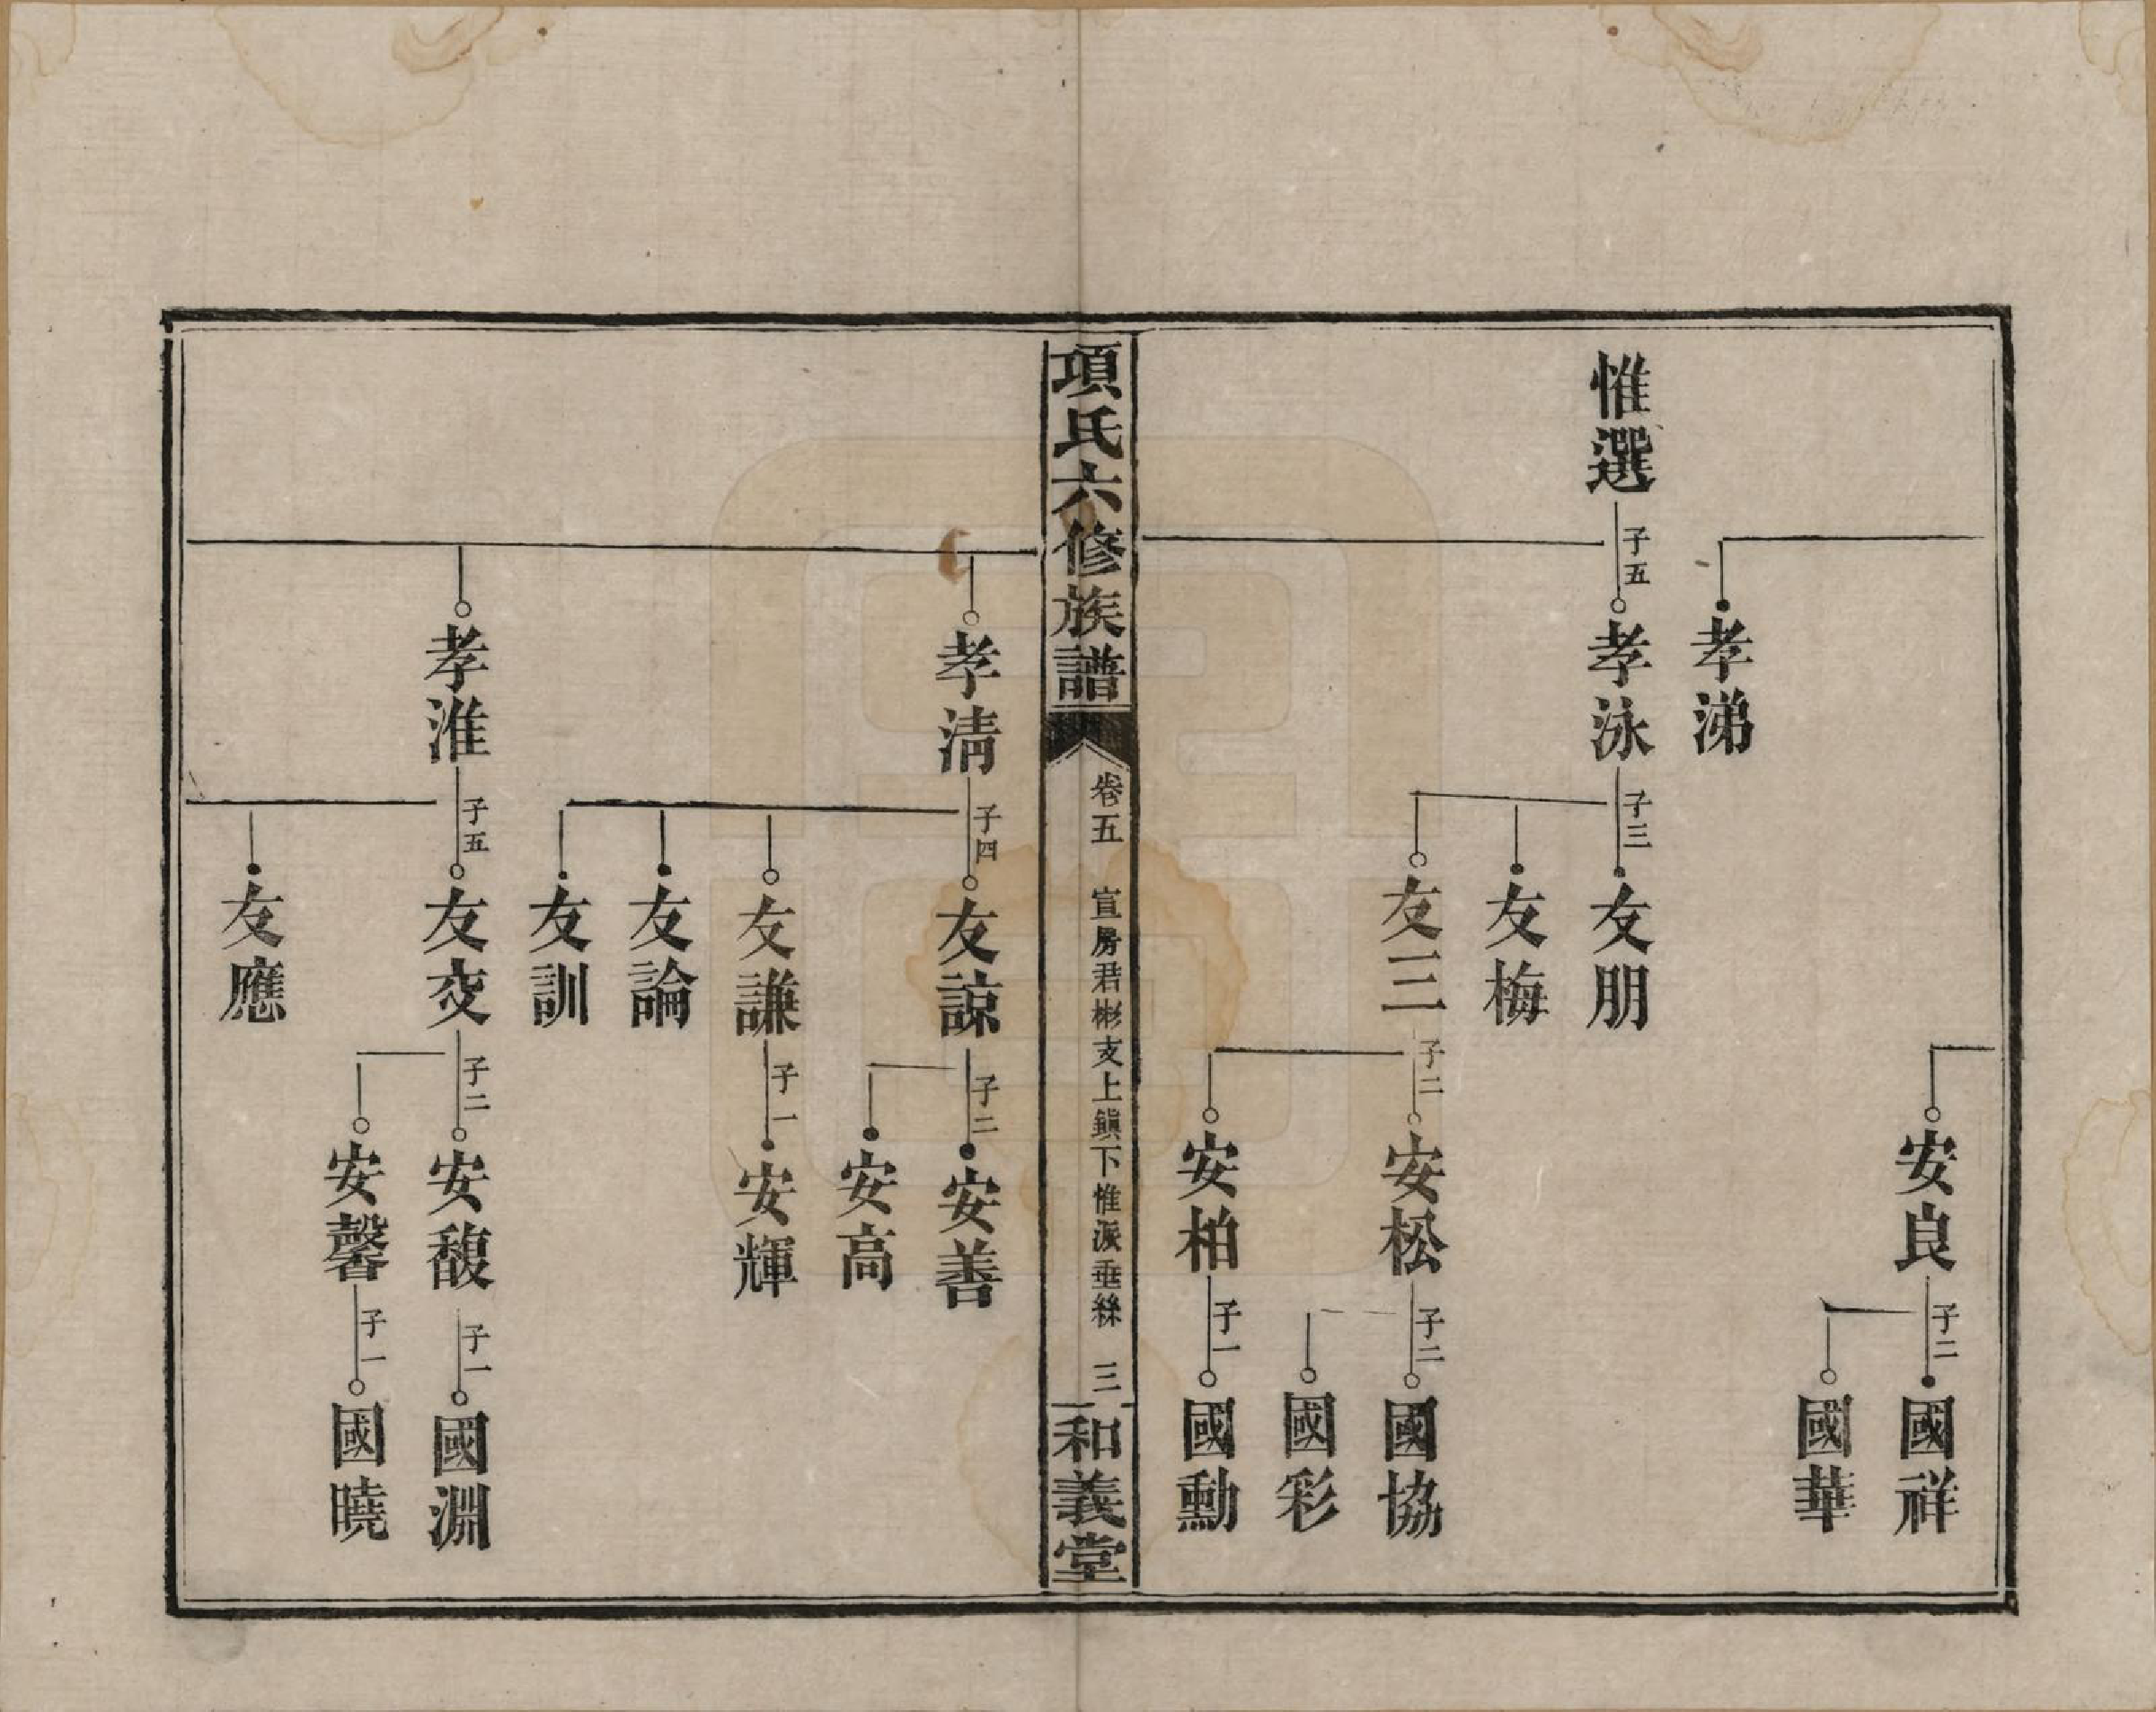 孝涕
安良
子二
國祥
國華
惟選
子五
孝泳
子三
友朋
友梅
友三
子二
安松
子二
國協
國彩
安柏
子一
國勳
項氏六修族譜
卷五 宣房君彬支上鎭下惟派垂絲 三
和義堂
孝清
子四
友諒
子二
安善
安高
友謙
子一
安輝
友論
友訓
孝淮
子五
友交
子二
安馥
子一
國淵
安馨
子一
國曉
友應